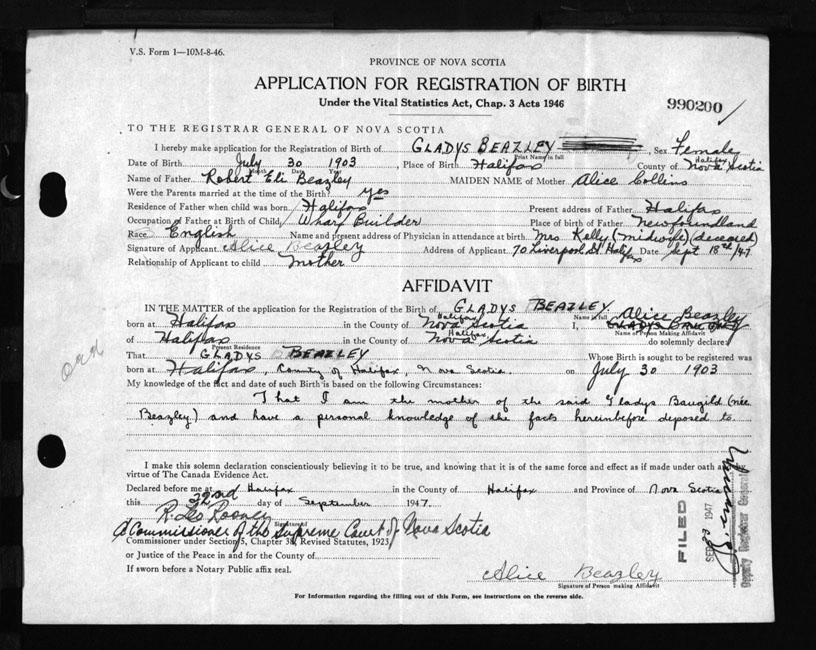 V.S. Form 1—10M-8-46.
PROVINCE OF NOVA SCOTIA
APPLICATION FOR REGISTRATION OF BIRTH
Under the Vital Statistics Act, Chap. 3 Acts 1946
990200
TO THE REGISTRAR GENERAL OF NOVA SCOTIA
I hereby make application for the Registration of Birth of GLADYS BEAZLEY, Sex Female
Print Name in full
Date of Birth July 30 1903 Place of Birth Halifax County of Halifax Nova Scotia
Month Date Year
Name of Father Robert Eli Beazley MAIDEN NAME of Mother Alice Collins
Were the Parents married at the time of the Birth? yes
Residence of Father when child was born Halifax Present address of Father Halifax
Occupation of Father at Birth of Child Wharf Builder Place of birth of Father Newfoundland
Race English Name and present address of Physician in attendance at birth Mrs Kelly (midwife) (deceased)
Signature of Applicant Alice Beazley Address of Applicant 70 Liverpool St. Halifax Date Sept 18th/47
Relationship of Applicant to child mother
AFFIDAVIT
IN THE MATTER of the application for the Registration of the Birth of GLADYS BEAZLEY
Name in full
born at Halifax in the County of Halifax Nova Scotia I, Alice Beazley
Name of Person Making Affidavit
of Halifax in the County of Halifax Nova Scotia do solemnly declare:
Present Residence
That GLADYS BEAZLEY Whose Birth is sought to be registered was
born at Halifax, County of Halifax, Nova Scotia. on July 30 1903
My knowledge of the fact and date of such Birth is based on the following Circumstances:
That I am the mother of the said Gladys Baugild (née
Beazley) and have a personal knowledge of the facts hereinbefore deposed to.
I make this solemn declaration conscientiously believing it to be true, and knowing that it is of the same force and effect as if made under oath and
virtue of The Canada Evidence Act.
Declared before me at Halifax in the County of Halifax and Province of Nova Scotia
this 22nd day of September 1947.
R. Leo Rooney
Signature of
A Commissioner of the Supreme Court of Nova Scotia
Commissioner under Section 5, Chapter 38, Revised Statutes, 1923,
or Justice of the Peace in and for the County of
If sworn before a Notary Public affix seal.
Alice Beazley
Signature of Person making Affidavit
For Information regarding the filling out of this Form, see instructions on the reverse side.
FILED
1947
Deputy Registrar General